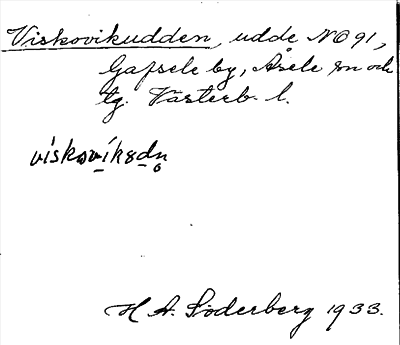 Viskovikudden, udde NO 91,
Gafsele by, Åsele sn och
tg. Västerb. l.
viskovíksdn̥
H A. Söderberg 1933.